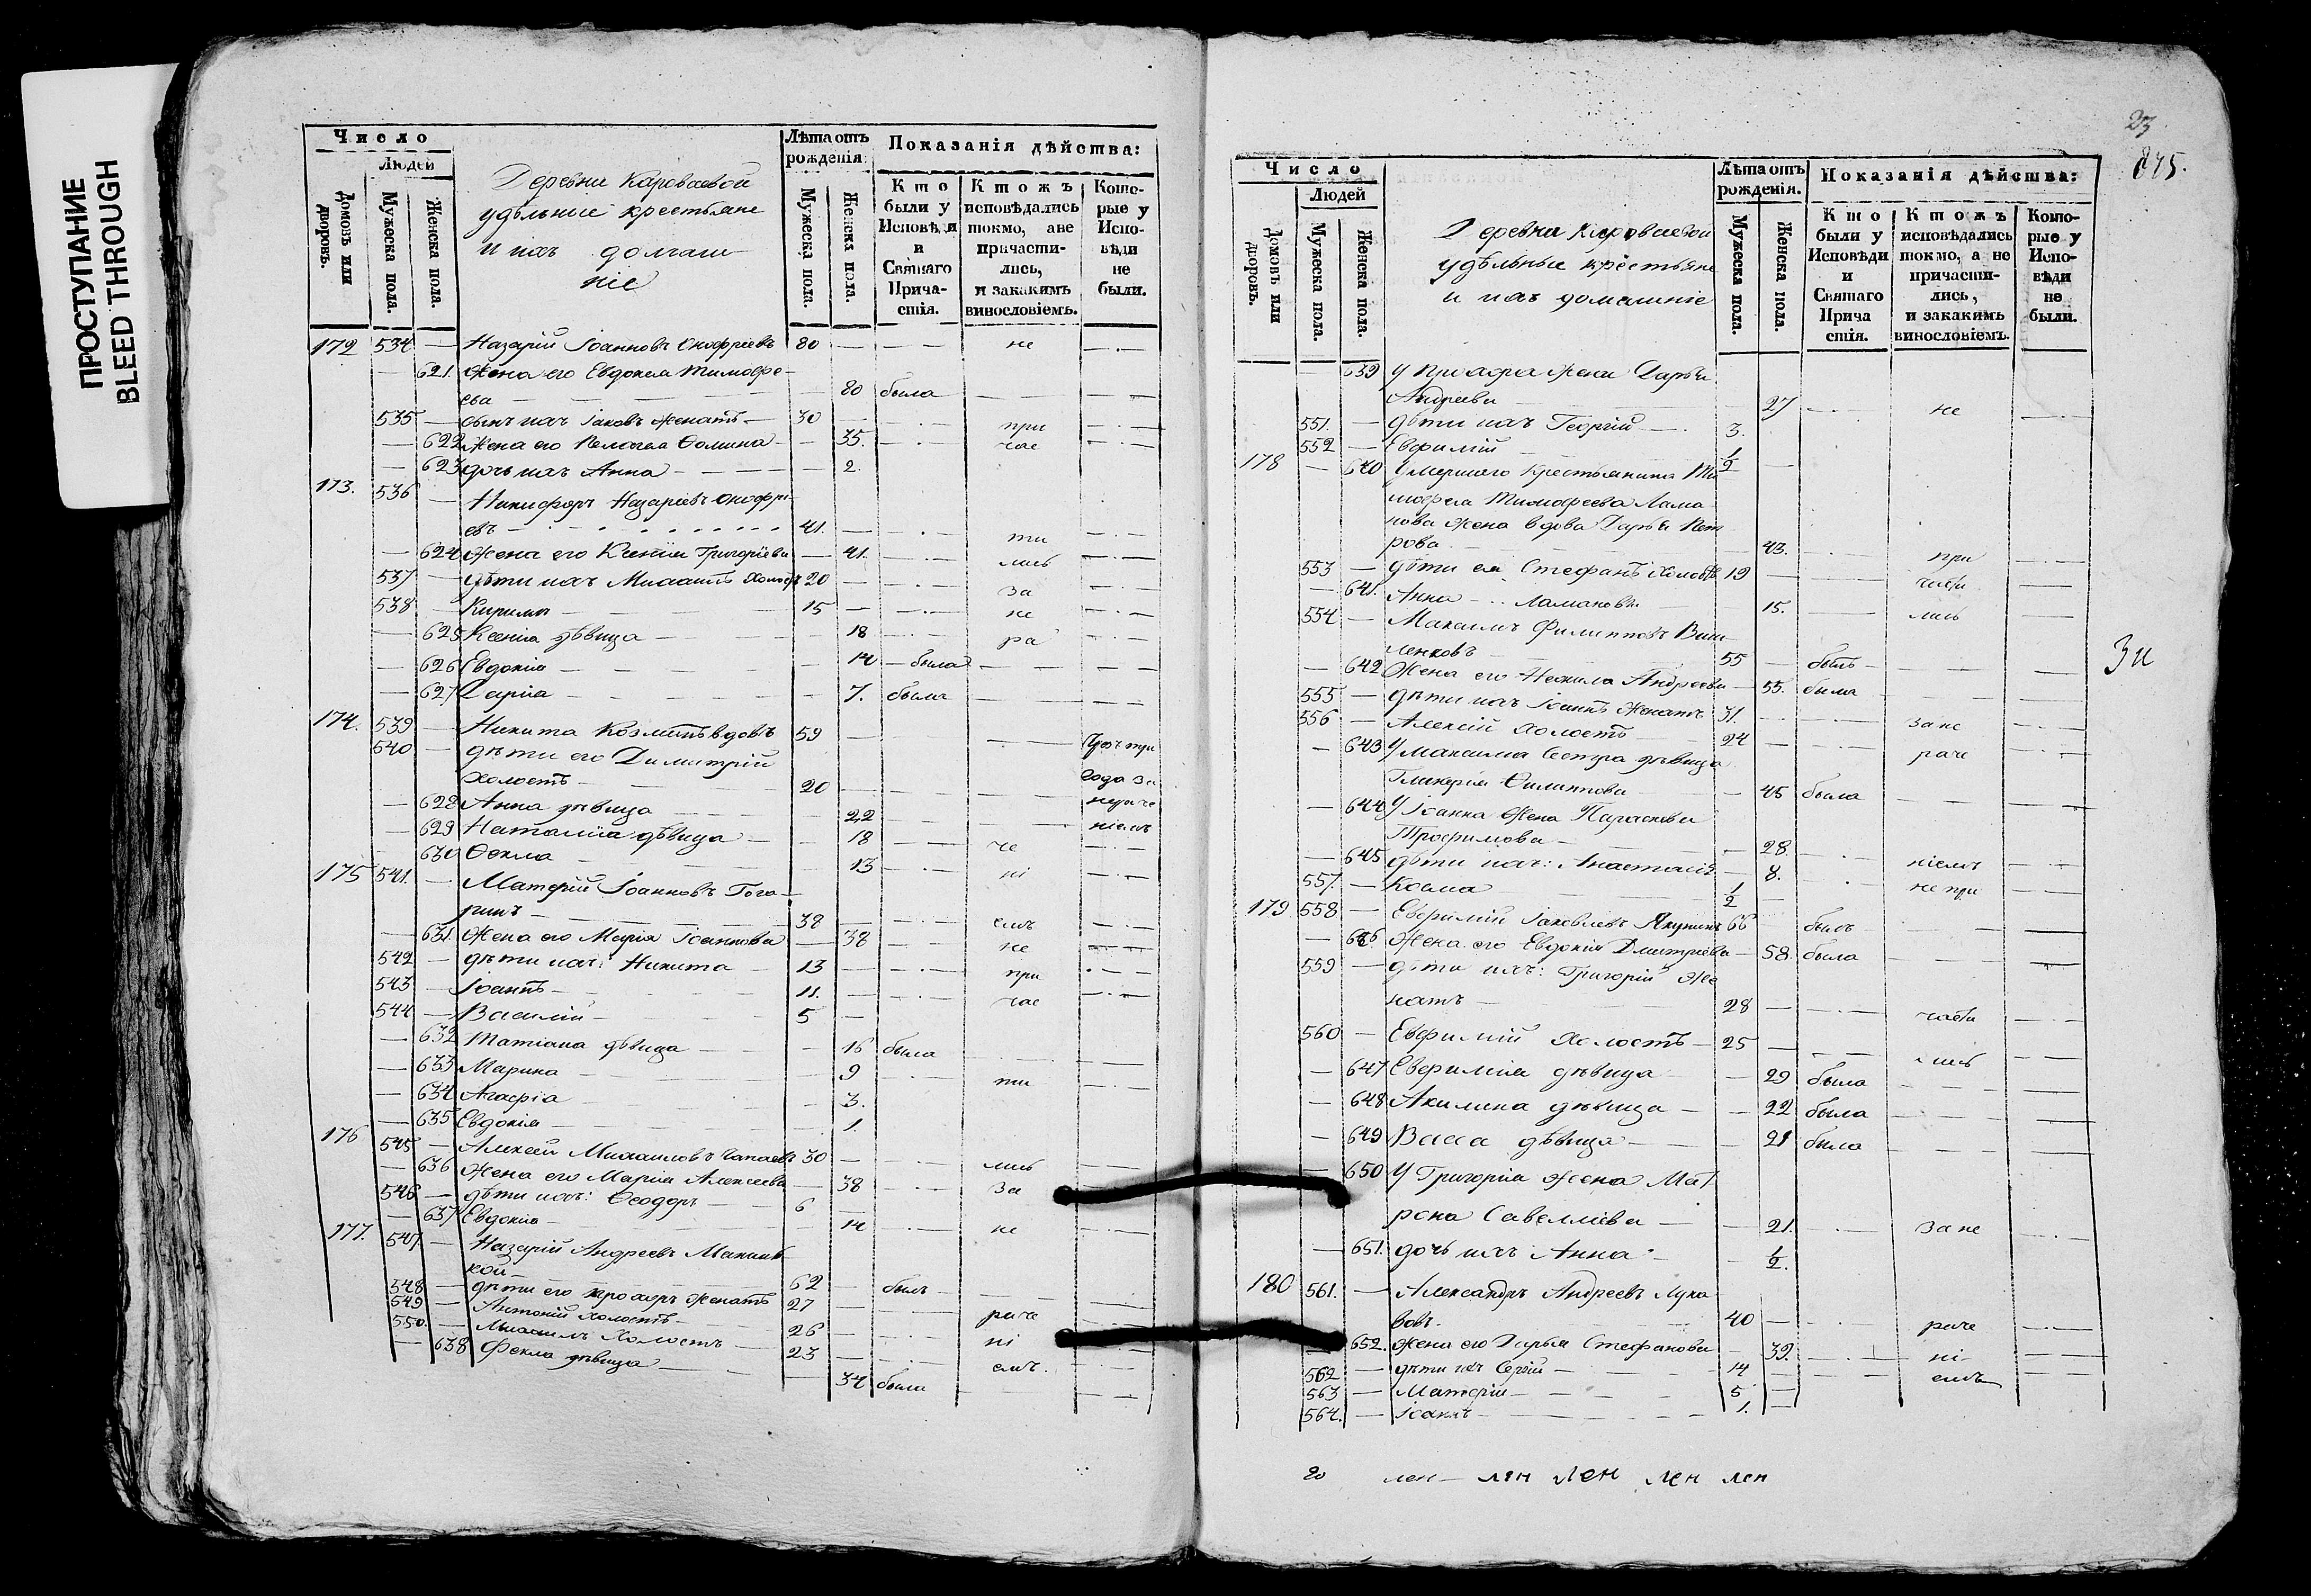 ПРОСТУПАНИЕ
BLEED THROUGH
Число
Людей
Домовъ или дворовъ.
Мужеска пола.
Женска пола.
Деревни Кароваевой
удѣльные крестьяне
и ихъ домаш
ніе
Лѣта отъ рожденія:
Мужеска пола.
Женска пола.
Показанія дѣйства:
Кто были у Исповѣди и Святаго Прича- стія.
Ктожъ исповѣдались токмо, а не причасти- лись, и закакимъ винословіемъ.
Кото- рые у Испо- вѣди не были.
172 534 — Назарій Іоанновъ Онофріевъ 80 — — — не — · —
— 621. Жена его Евдокея Тимофе-
ева — 80 была — — —
535 — сынъ ихъ Іаковъ женатъ — 30 — · — при — · —
— 622 Жена его Пелагея Фомина — — 35. — · — час — · —
— 623 дочь ихъ Анна — — — — 2.
173. 536 — Никифоръ Назаріевъ Онофрі-
евъ — 41. — — · — ти — · —
— 624 Жена его Ксенія Григоріева — 41. — · — лись — · —
537 — дѣти ихъ Михаилъ холостъ 20 — — · — за — · —
538 — Кирилъ — 15 — — · — не — · —
— 625 Ксенія дѣвица — — 18 — · — ра — · —
— 626 Евдокія — — 14 — была — — — —
— 627 Дарія — — 7. была — — — —
174. 539 — Никита Козминъ вдовъ 59 — — — Чрезъ три
540 — дѣти его Димитрій
холостъ — 20 — — — года за
— 628 Анна дѣвица — 22 — — нераче
— 629 Наталія дѣвица — — 18 — — ніемъ
— 630 Ѳекла — 13 — — че — · —
175 541. — Матфій Іоанновъ Гога- ні
ринъ — 38 — — · — емъ — · —
— 631. Жена его Марія Іоаннова — 38 — · — не — · —
542 — дѣти ихъ: Никита — 13 — — · — при — · —
543 — Іоаннъ — 11. — — · — час — · —
544 — Василій — 5 —
— 632 Татіана дѣвица — — 16 была — — —
— 633 Марина — — 9 — · — ти — · —
— 634 Агафіа — — 3.
— 635 Евдокія — — 1.
176 545 — Алексей Михаиловъ 30 — лись —
— 636 Жена его Марія Алексеева — 38 — · — за —
546 — дѣти ихъ: Ѳеодоръ — 6 —
— 637 Евдокія — 14 — · — не — · —
177. 547 — Назарій Андреевъ
кой — 62 — былъ — — —
548 — дѣти его Прохоръ женатъ 27 — — раче —
549 — Антоній холостъ — 26 — — · — ні —
550. — Михаилъ холостъ — 23 — — · — емъ. —
— 638 Фекла дѣвица — — 34 была — — —
23
845.
Число
Людей
Домовъ или дворовъ.
Мужеска пола.
Женска пола.
Деревни Кароваевой
удѣльные крестьяне
и ихъ домашніе
Лѣта отъ рожденія.
Мужеска пола.
Женска пола.
Показанія дѣйства:
Кто были у Исповѣди и Святаго Прича стія.
Ктожъ исповѣдались токмо, а не причасти- лись, и закакимъ винословіемъ.
Кото- рые у Испо- вѣди не были.
— 639 у Прохора жена Дарья
Андреева — 27 — · — не — · —
551. — дѣти ихъ Георгій — 3.
552 — Евфимій — 1/2 —
178 — 640 Умершаго крестьянина Ти
мофея Тимофеева Лама
нова жена вдова Дарья Пет
рова — — 43. — · — при — · —
553 — дѣти ея Стефанъ холостъ 19 — — части —
— 641. Анна — Лamановы — 15. — лись —
554 — Максимъ Филипповъ
ленковъ — 55 — былъ — — —
— 642 Жена его Неонила Андреева — 55. была — — —
555 — дѣти ихъ Іоаннъ женатъ 31. — — · — за не — · —
556 — Алексій холостъ — 24 — — · — раче — · —
— 643 У Максима сестра дѣвица
Гликерія Филиппова — — 45 была — — —
— 644 У Іоанна жена Параскева
Трофимова — — 28. — · — ніемъ — · —
— 645 дѣти ихъ: Анастасія — 8. — не при — —
557. — Косма — 1/2 —
179 558 — Евфимій Іаковлевъ Якунинъ 66 былъ — — —
— 646 Жена его Евдокія Дмитріева — 58. была — — —
559 — дѣти ихъ: Григорій же
натъ — 28 — — · — части — · —
560 — Евфимій холостъ — 25 — — — лись — —
— 647 Евфимія дѣвица — — 29 была — — —
— 648 Акилина дѣвица — — 22 была — — —
— 649 Васса дѣвица — — 21 была — — —
— 650 У Григорія жена Мат
рона Савелліева — — 21. — · — за не — · —
— 651. дочь ихъ Анна — — 1/2.
180 561. — Александръ Андреевъ Лука
вовъ — 40 — — · — раче — · —
— 652. Жена его Дарья Стефанова — 39. — · — ні — —
562 — дѣти ихъ Сергій — 14 — — — емъ — —
563 — Матфій — 5 —
564. — Іоаннъ — 1. —
лен — лен лен лен лен